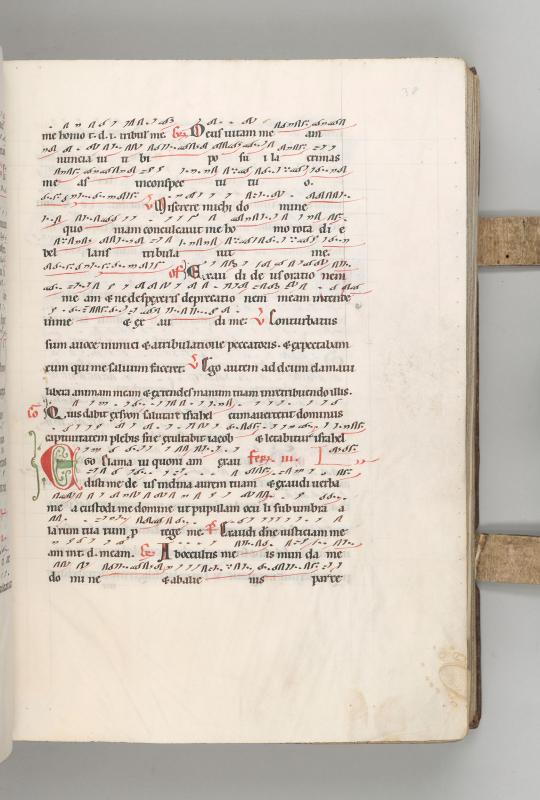 38
me homo t. d. i. tribul me. Gr̄ Deus vitam me am
nuncia ui ti bi po su i la crimas
me as inconspec tu tu o.
V Miserere michi do mine
quo niam conculcavit me ho mo tota di e
bel lans tribula vit me.
of Exau di de us oratio nem
me am & ne despexeris deprecatio nem meam intende
inme & ex au di me: V Conturbatus
sum avoce inimici & atribulatione peccatoris. & expectabam
eum qui me salvum faceret. V Ego autem ad deum clamavi
libera animam meam & extendes manum tuam inretribuendo illis.
co Quis dabit exsyon salutare israhel cum averterit dominus
captivitatem plebis sue exultabit iacob & letabitur israhel
Ego clama vi quoni am exau feria iii.
disti me de us inclina aurem tuam & exaudi verba
me a custodi me domine ut pupillam ocu li sub umbra a
larum tua rum p tege me. Ps Exaudi dne iusticiam me
am int. d. meam. Gr̄ Aboccultis me is mun da me
do mi ne & abalie nis parce